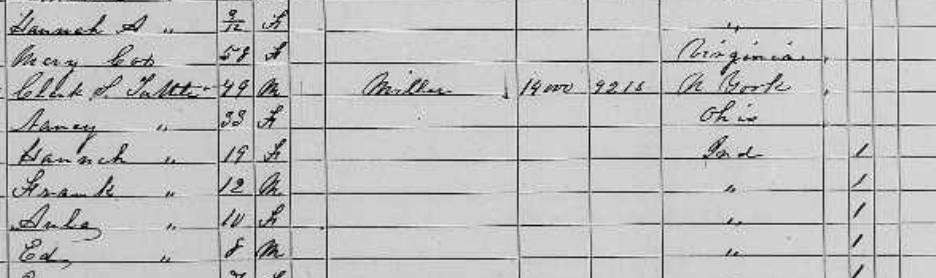 Hannah A " 9/12 F "
Mary Cox 58 F Virginia
Clark S. Tuttle 49 M Miller 14000 9215 N York
Nancy " 33 F Ohio
Hannah " 19 F Ind 1
Frank " 12 M " 1
" 10 F " 1
Ed " 8 M " 1
1